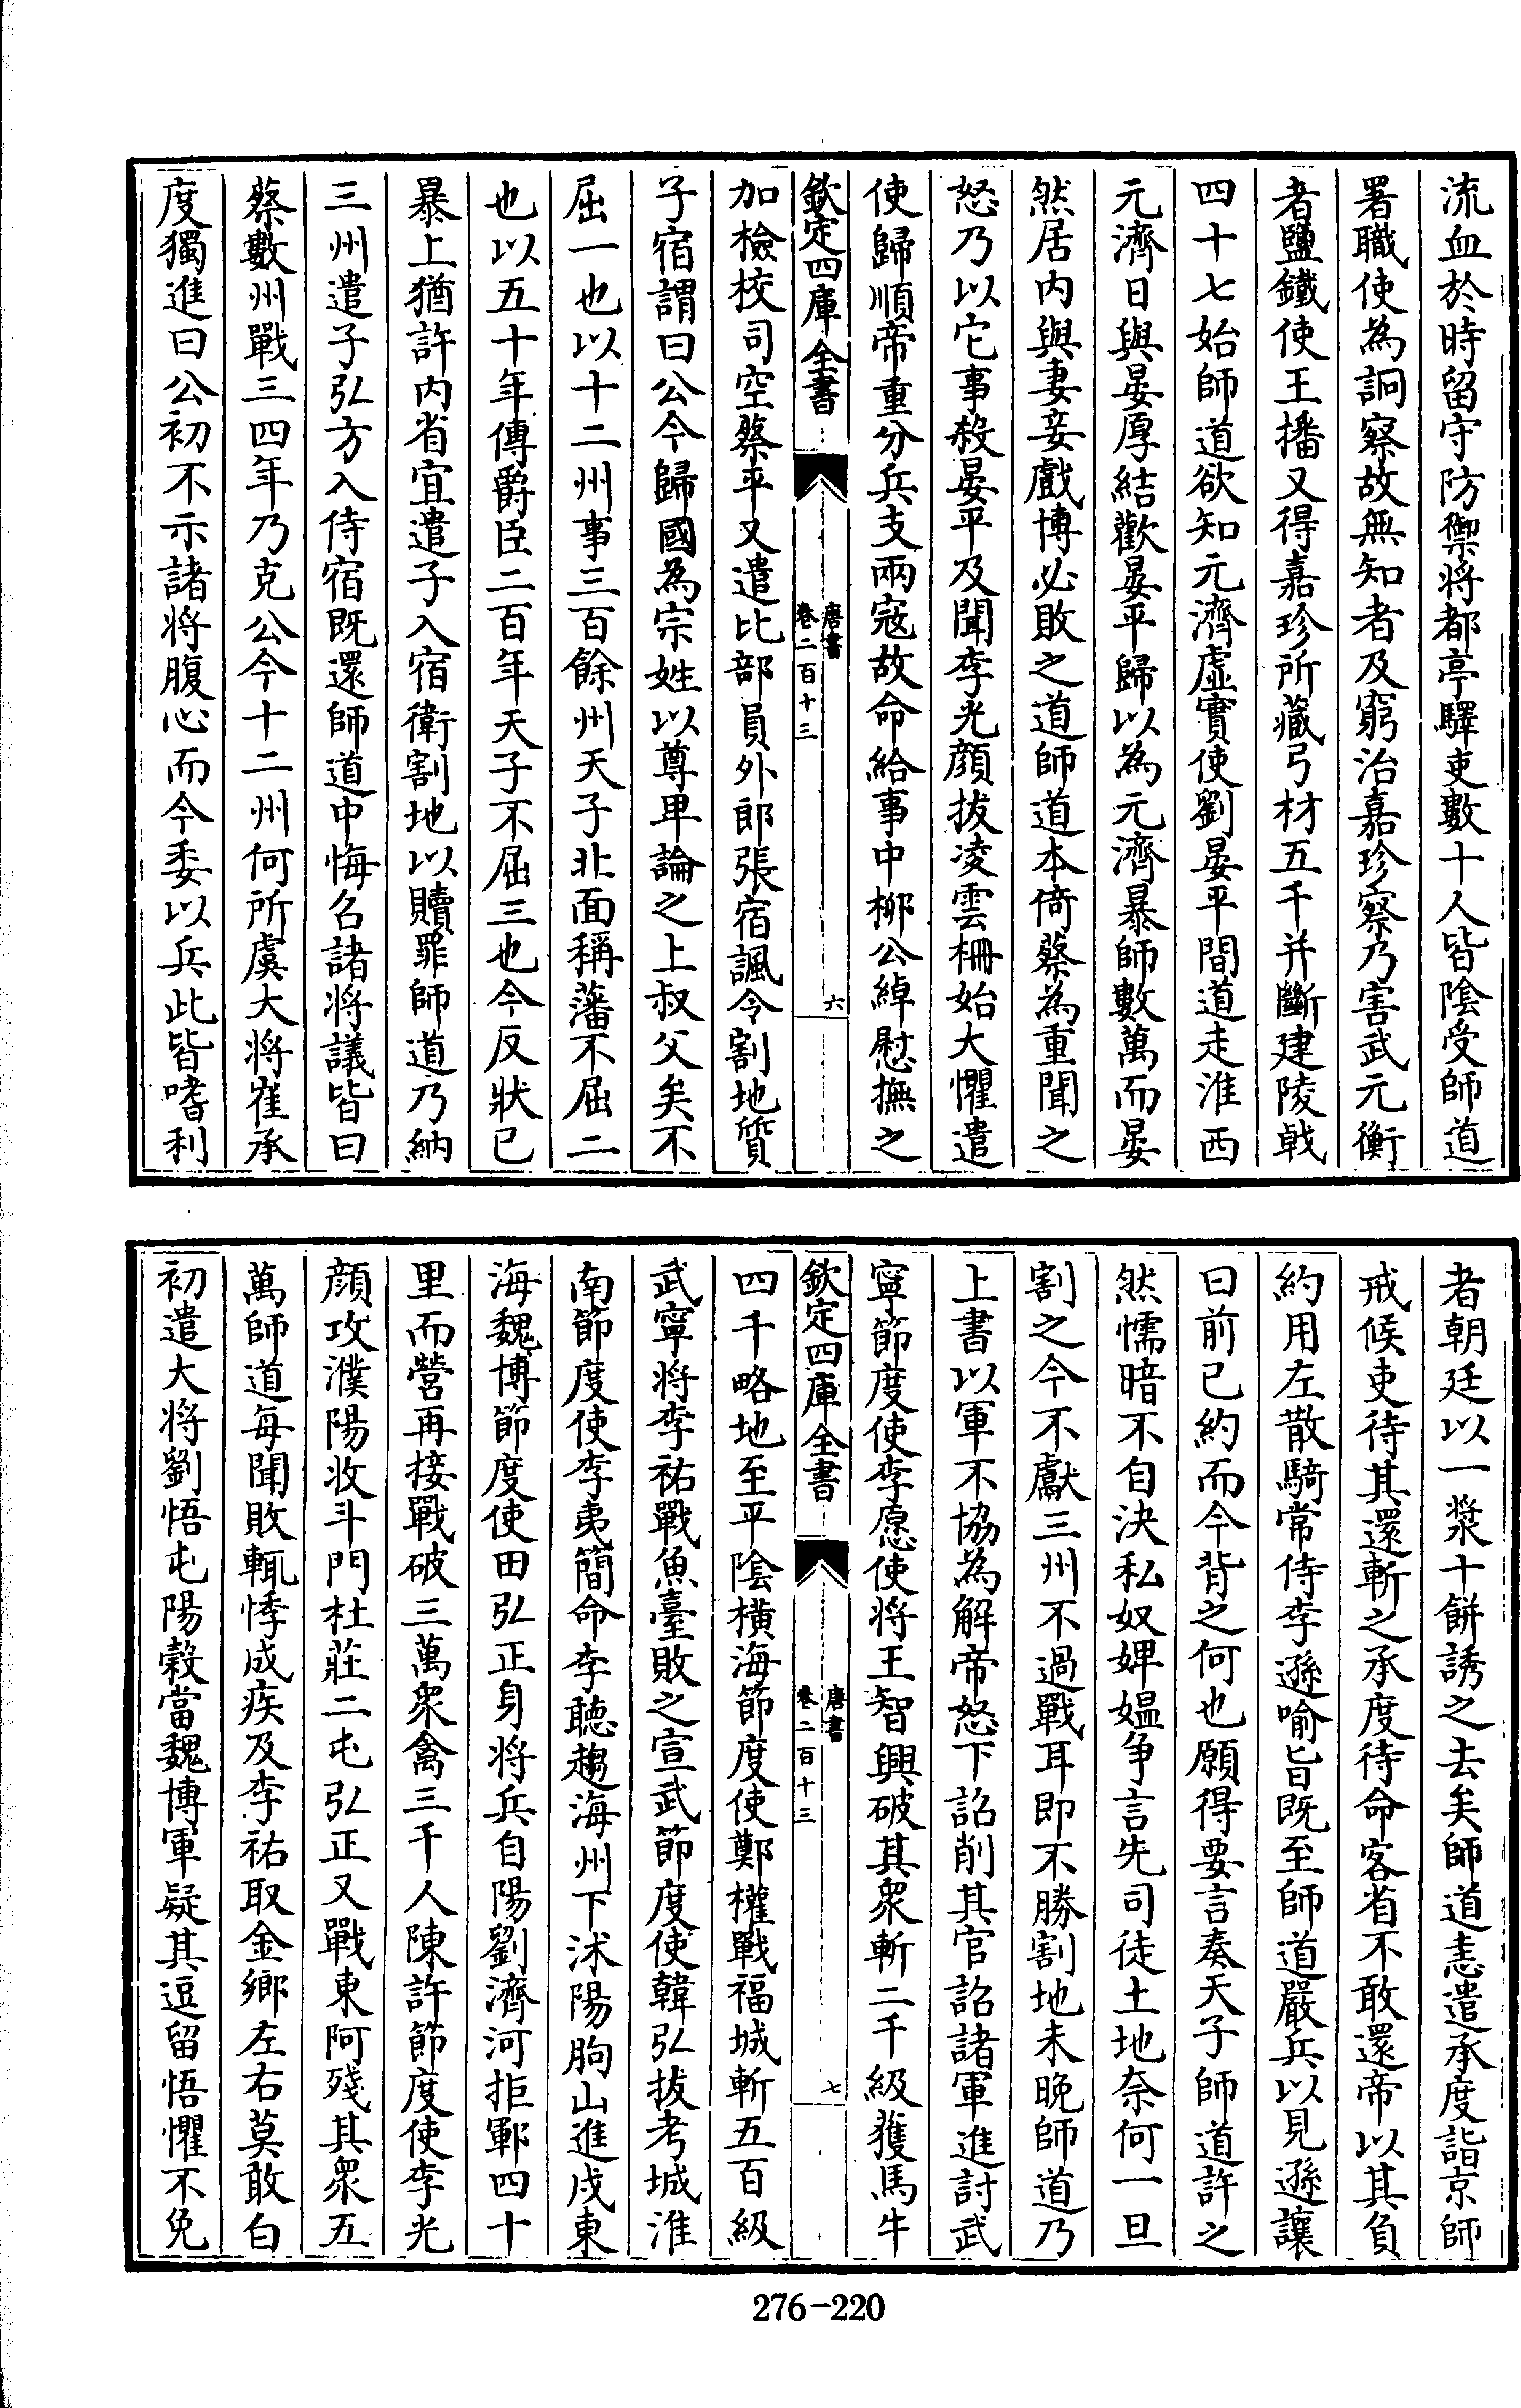 流血於時留守防禦将都亭驛吏數十人皆陰受師道
署職使為詗察故無知者及窮治嘉珍察乃害武元衡
者鹽鐵使王播又得嘉珍所藏弓材五千并斷建陵戟
四十七始師道欲知元濟虛實使劉晏平間道走淮西
元濟日與晏厚結歡晏平歸以為元濟暴師數萬而晏
然居内與妻妾戲博必敗之道師道本倚蔡為重聞之
怒乃以它事殺晏平及聞李光顔拔凌雲柵始大懼遣
使歸順帝重分兵支兩寇故命給事中柳公綽慰撫之
欽定四庫全書
唐書
卷二百十三
六
加檢校司空蔡平又遣比部員外郎張宿諷令割地質
子宿謂曰公今歸國為宗姓以尊卑論之上叔父矣不
屈一也以十二州事三百餘州天子北面稱藩不屈二
也以五十年傳爵臣二百年天子不屈三也今反狀已
暴上猶許内省宜遣子入宿衛割地以贖罪師道乃納
三州遣子弘方入侍宿既還師道中悔召諸将議皆曰
蔡數州戰三四年乃克公今十二州何所虞大将崔承
度獨進曰公初不示諸将腹心而今委以兵此皆嗜利
者朝廷以一漿十餅誘之去矣師道恚遣承度詣京師
戒候吏待其還斬之承度待命客省不敢還帝以其負
約用左散騎常侍李遜喻旨既至師道嚴兵以見遜讓
曰前已約而今背之何也願得要言奏天子師道許之
然懦暗不自決私奴婢媪争言先司徒土地奈何一旦
割之今不獻三州不過戰耳即不勝割地未晚師道乃
上書以軍不協為解帝怒下詔削其官詔諸軍進討武
寧節度使李愿使将王智興破其衆斬二千級獲馬牛
欽定四庫全書
唐書
卷二百十三
七
四千略地至平陰横海節度使鄭權戰福城斬五百級
武寧将李祐戰魚臺敗之宣武節度使韓弘拔考城淮
南節度使李夷簡命李聽趨海州下沭陽朐山進戍東
海魏博節度使田弘正身将兵自陽劉濟河拒鄆四十
里而營再接戰破三萬衆禽三千人陳許節度使李光
顔攻濮陽收斗門杜莊二屯弘正又戰東阿殘其衆五
萬師道每聞敗輒悸成疾及李祐取金鄉左右莫敢白
初遣大将劉悟屯陽榖當魏博軍疑其逗留悟懼不免
276-220